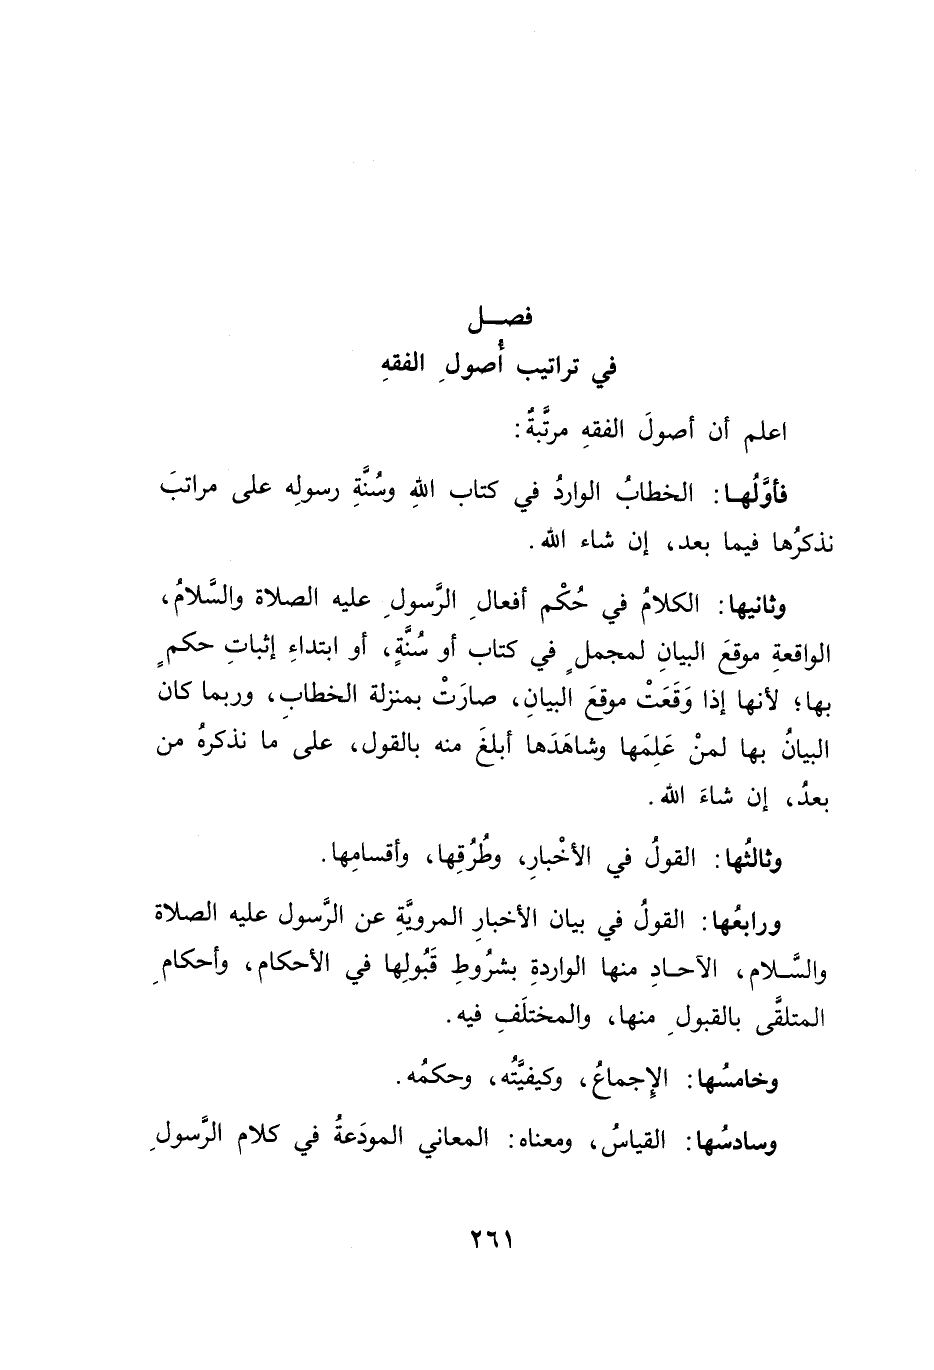 فصـــل
في تراتيب أُصولِ الفقهِ
اعلم أن أصولَ الفقهِ مرتَّبةٌ:
فأوَّلُهـا: الخطابُ الواردُ في كتاب اللهِ وسُنَّةِ رسولِه على مراتبَ
نذكرُها فيما بعد، إن شاء الله.
وثانيها: الكلامُ في حُكْم أفعالِ الرَّسولِ عليه الصلاة والسَّلامُ،
الواقعةِ موقعَ البيانِ لمجملٍ في كتاب أو سُنَّةٍ، أو ابتداءِ إثباتِ حكمٍ
بها؛ لأنها إذا وَقَعَتْ موقعَ البيانِ، صارَتْ بمنزلة الخطابِ، وربما كان
البيانُ بها لمنْ عَلِمَها وشاهَدَها أبلغَ منه بالقول، على ما نذكرهُ من
بعدُ، إن شاءَ الله.
وثالثُها: القولُ في الأخْبارِ، وطُرُقِها، وأقسامِها.
ورابعُها: القولُ في بيان الأخبارِ المرويَّةِ عن الرَّسول عليه الصلاة
والسَّـلام، الآحـادِ منها الواردةِ بشرُوطِ قَبُولِها في الأحكام، وأحكامِ
المتلقَّى بالقبولِ منها، والمختلَفِ فيه.
وخامسُها: الإِجماعُ، وكيفيَّتُه، وحكمُه.
وسادسُها: القياسُ، ومعناه: المعاني المودَعةُ في كلام الرَّسولِ
٢٦١